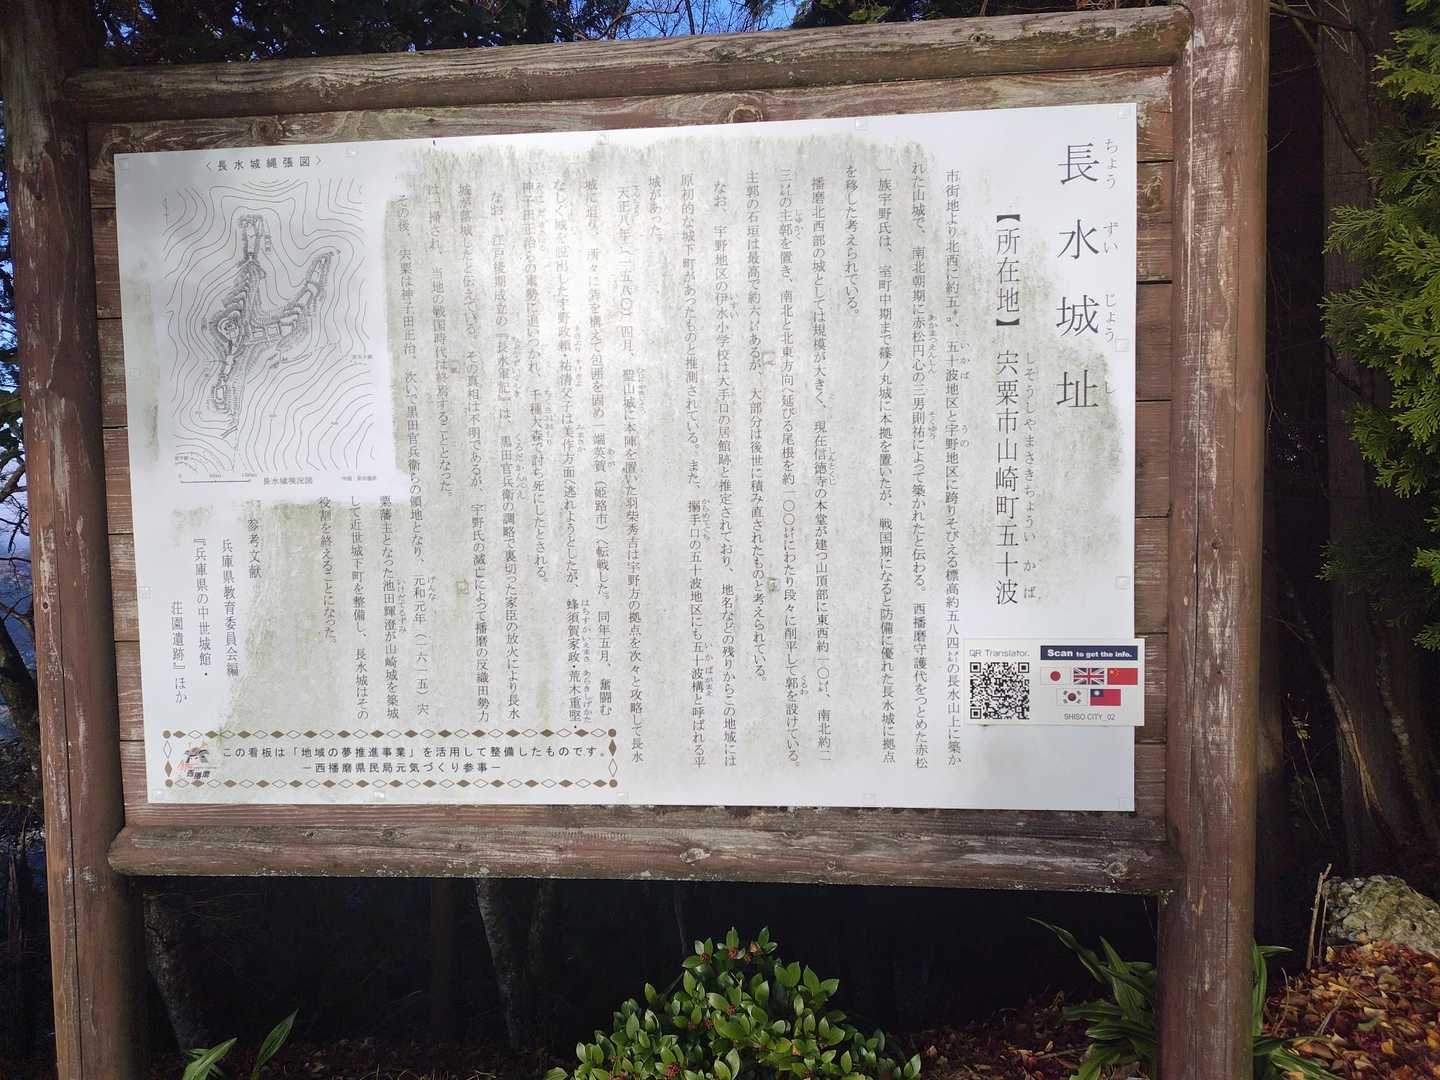 長水城址
ちょうずいじょうし
【所在地】 宍粟市山崎町五十波
しそうしやまさきちょういかば
市街地より北西に約五㌔、五十波地区と宇野地区に跨りそびえる標高約五八四㍍の長水山上に築か
れた山城で、南北朝期に赤松円心の三男則祐によって築かれたと伝わる。西播磨守護代をつとめた赤松
一族宇野氏は、室町中期まで篠ノ丸城に本拠を置いたが、戦国期になると防備に優れた長水城に拠点
を移した考えられている。
播磨北西部の城としては規模が大きく、現在信徳寺の本堂が建つ山頂部に東西約一〇㍍、南北約二
三㍍の主郭を置き、南北と北東方向へ延びる尾根を約一〇〇㍍にわたり段々に削平して郭を設けている。
主郭の石垣は最高で約六㍍あるが、大部分は後世に積み直されたものと考えられている。
なお、宇野地区の伊水小学校は大手口の居館跡と推定されており、地名などの残りからこの地域には
原初的な城下町があったものと推測されている。また、搦手口の五十波地区にも五十波構と呼ばれる平
城があった。
天正八年(一五八〇)四月、聖山城に本陣を置いた羽柴秀吉は宇野方の拠点を次々と攻略して長水
城に迫り、所々に砦を構えて包囲を固め一端英賀(姫路市)へ転戦した。同年五月、奮闘む
なしく城を脱出した宇野政頼・祐清父子は美作方面へ逃れようとしたが、蜂須賀家政・荒木重堅・
神子田正治らの軍勢に追いつかれ、千種大森で討ち死にしたとされる。
なお、江戸後期成立の『長水軍記』は、黒田官兵衛の調略で裏切った家臣の放火により長水
城が落城したと伝えている。その真相は不明であるが、宇野氏の滅亡によって播磨の反織田勢力
は一掃され、当地の戦国時代は終焉することとなった。
その後、宍粟は神子田正治、次いで黒田官兵衛らの領地となり、元和元年(一六一五)宍
粟藩主となった池田輝澄が山崎城を築城
して近世城下町を整備し、長水城はその
役割を終えることになった。
参考文献
兵庫県教育委員会編
『兵庫県の中世城館・
荘園遺跡』ほか
〈長水城縄張図〉
長水城現況図
この看板は「地域の夢推進事業」を活用して整備したものです。
－西播磨県民局元気づくり参事－
西播磨
QR Translator.
Scan to get the info.
SHISO CITY_02